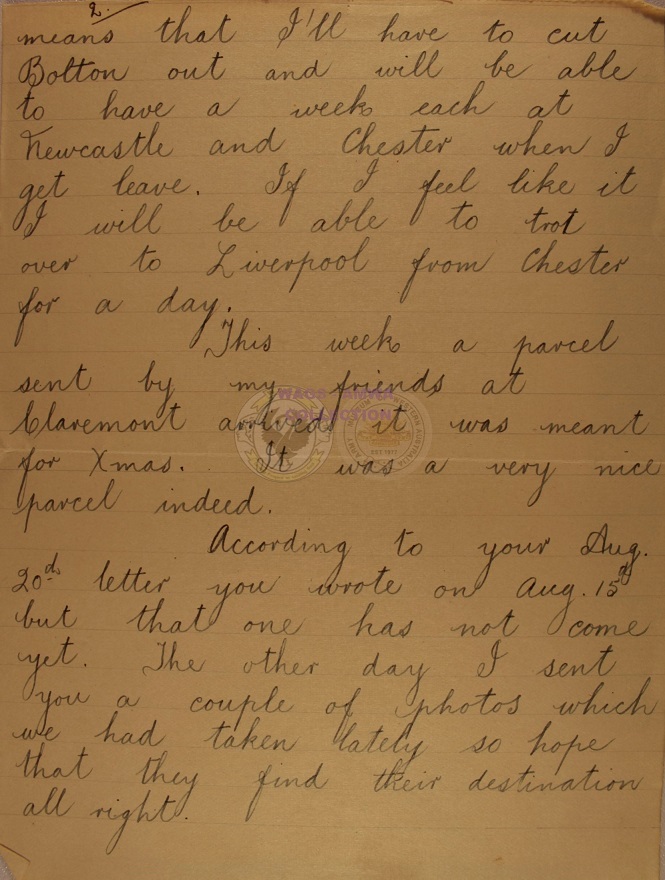 2.
means that I'll have to cut
Bolton out and will be able
to have a week each at
Newcastle and Chester when I
get leave. If I feel like it
I will be able to trot
over to Liverpool from Chester
for a day.
This week a parcel
sent by my friends at
Claremont arriveds it was meant
for Xmas. It was a very nice
parcel indeed.
According to your Aug.
20d letter you wrote on Aug. 15d
but that one has not come
yet. The other day I sent
you a couple of photos which
we had taken lately so hope
that they find their destination
all right.
WAGS
COLLECTION